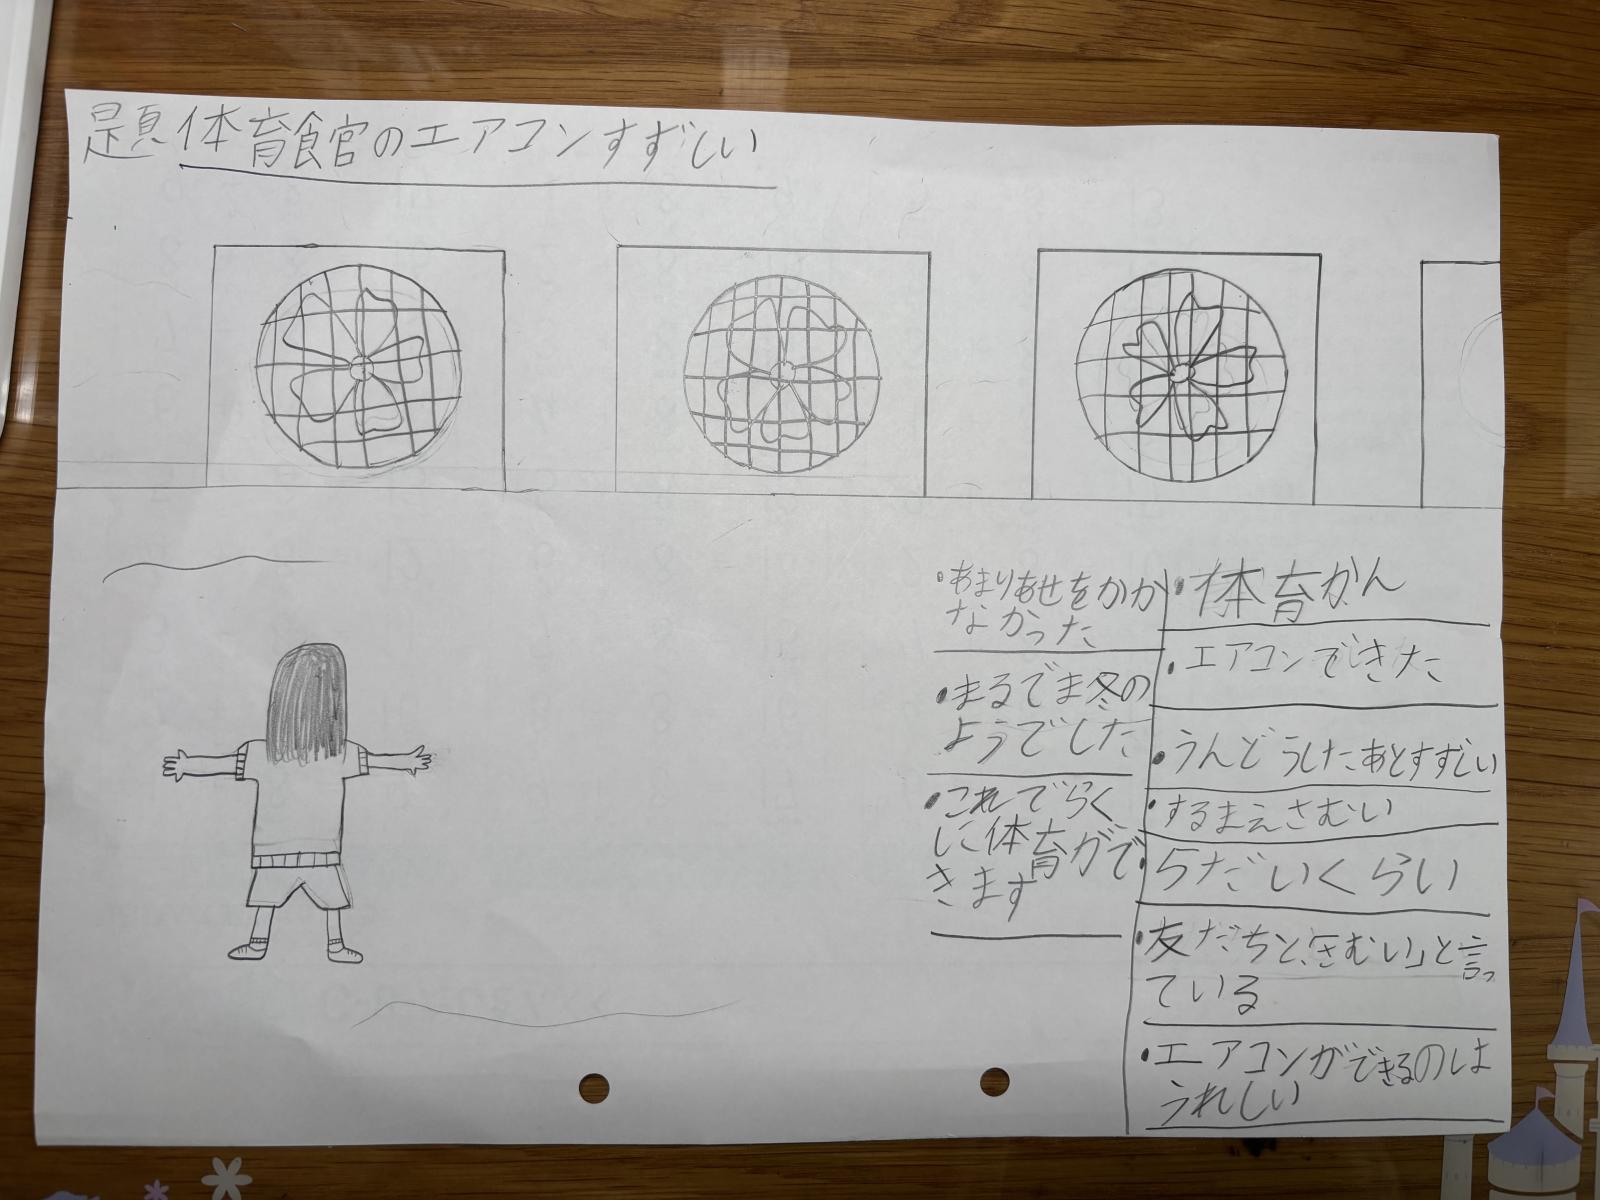 題 体育館のエアコンすずしい
・体育かん
・エアコンできた
・うんどうしたあとすずしい
・するまえさむい
・5だいくらい
・友だちと、「さむい」と言っ
ている
・エアコンができるのは
うれしい
・あまりあせをかか
なかった
・まるでま冬の
ようでした
・これでらく
に体育がで
きます